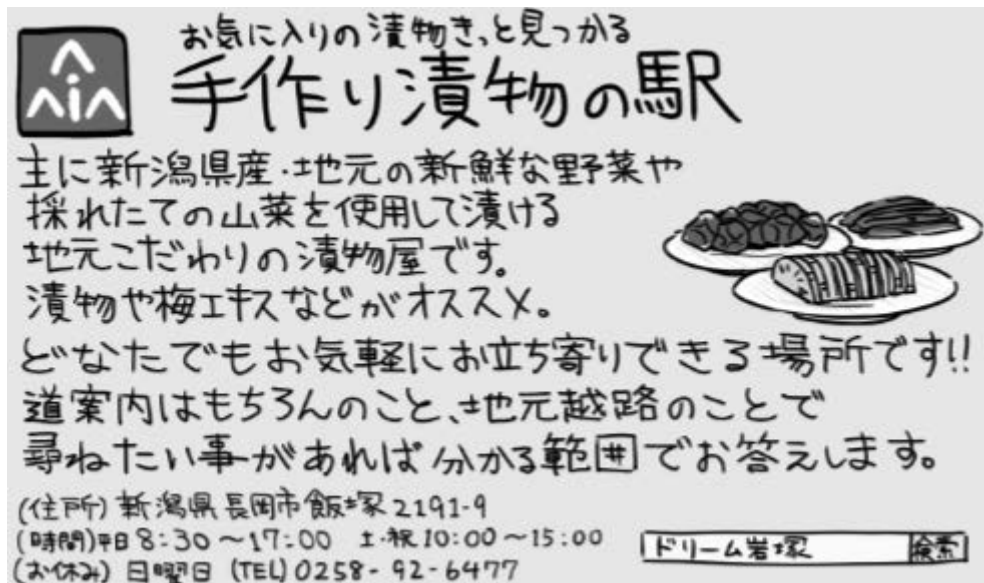 お気に入りの漬物きっと見つかる
手作り漬物の駅
主に新潟県産・地元の新鮮な野菜や
採れたての山菜を使用して漬ける
地元こだわりの漬物屋です。
漬物や梅エキスなどがオススメ。
どなたでもお気軽にお立ち寄りできる場所です!!
道案内はもちろんのこと、地元越路のことで
尋ねたい事があれば分かる範囲でお答えします。
(住所)新潟県長岡市飯塚2191-9
(時間)平日8:30~17:00 土・祝10:00~15:00
(お休み)日曜日 (TEL)0258-92-6477
ドリーム岩塚 検索